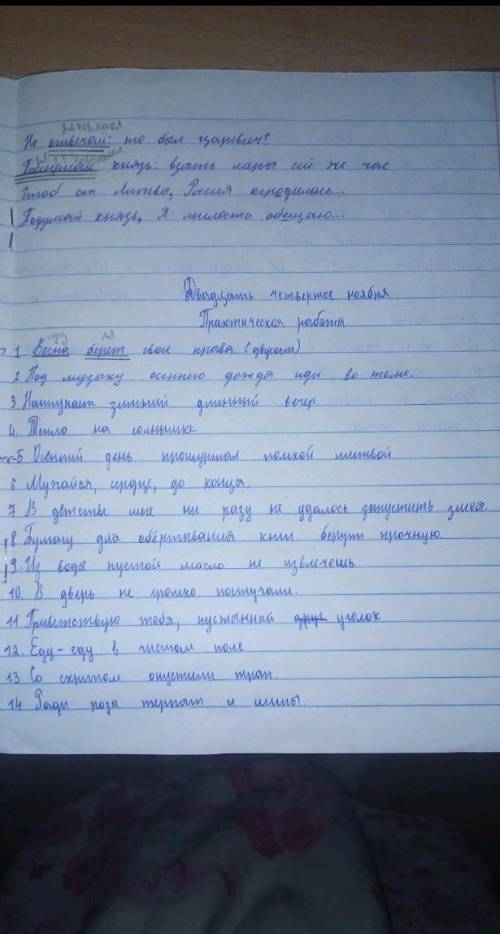 гл. пов. накл
Не отвечают: то был царевич?
князь: взять меры сей же час
Чтоб от Литвы, Россия оградилась...
Подумай князь, Я милость обещаю...
Двадцать четвертое ноября
Практическая работа
1 Весна берет свои права (двусост)
2 Под музыку осеннего дождя иду во тьме.
3 Наступает зимний длинный вечер.
4. Тепло на солнышке.
5 Осенний день прошуршал ломкой листвой
6 Мужайся, сердце, до конца.
7 В детстве мне ни разу не удалось запустить змея.
8 Бумагу для обёртывания книг берут прочную.
9. Из воды пустой масло не извлечешь
10. В дверь не громко постучали.
11 Приветствую тебя, пустынный уголок
12. Еду-еду в чистом поле
13 Со скрипом опустили трап.
14 Ради роза терпят и шипы.